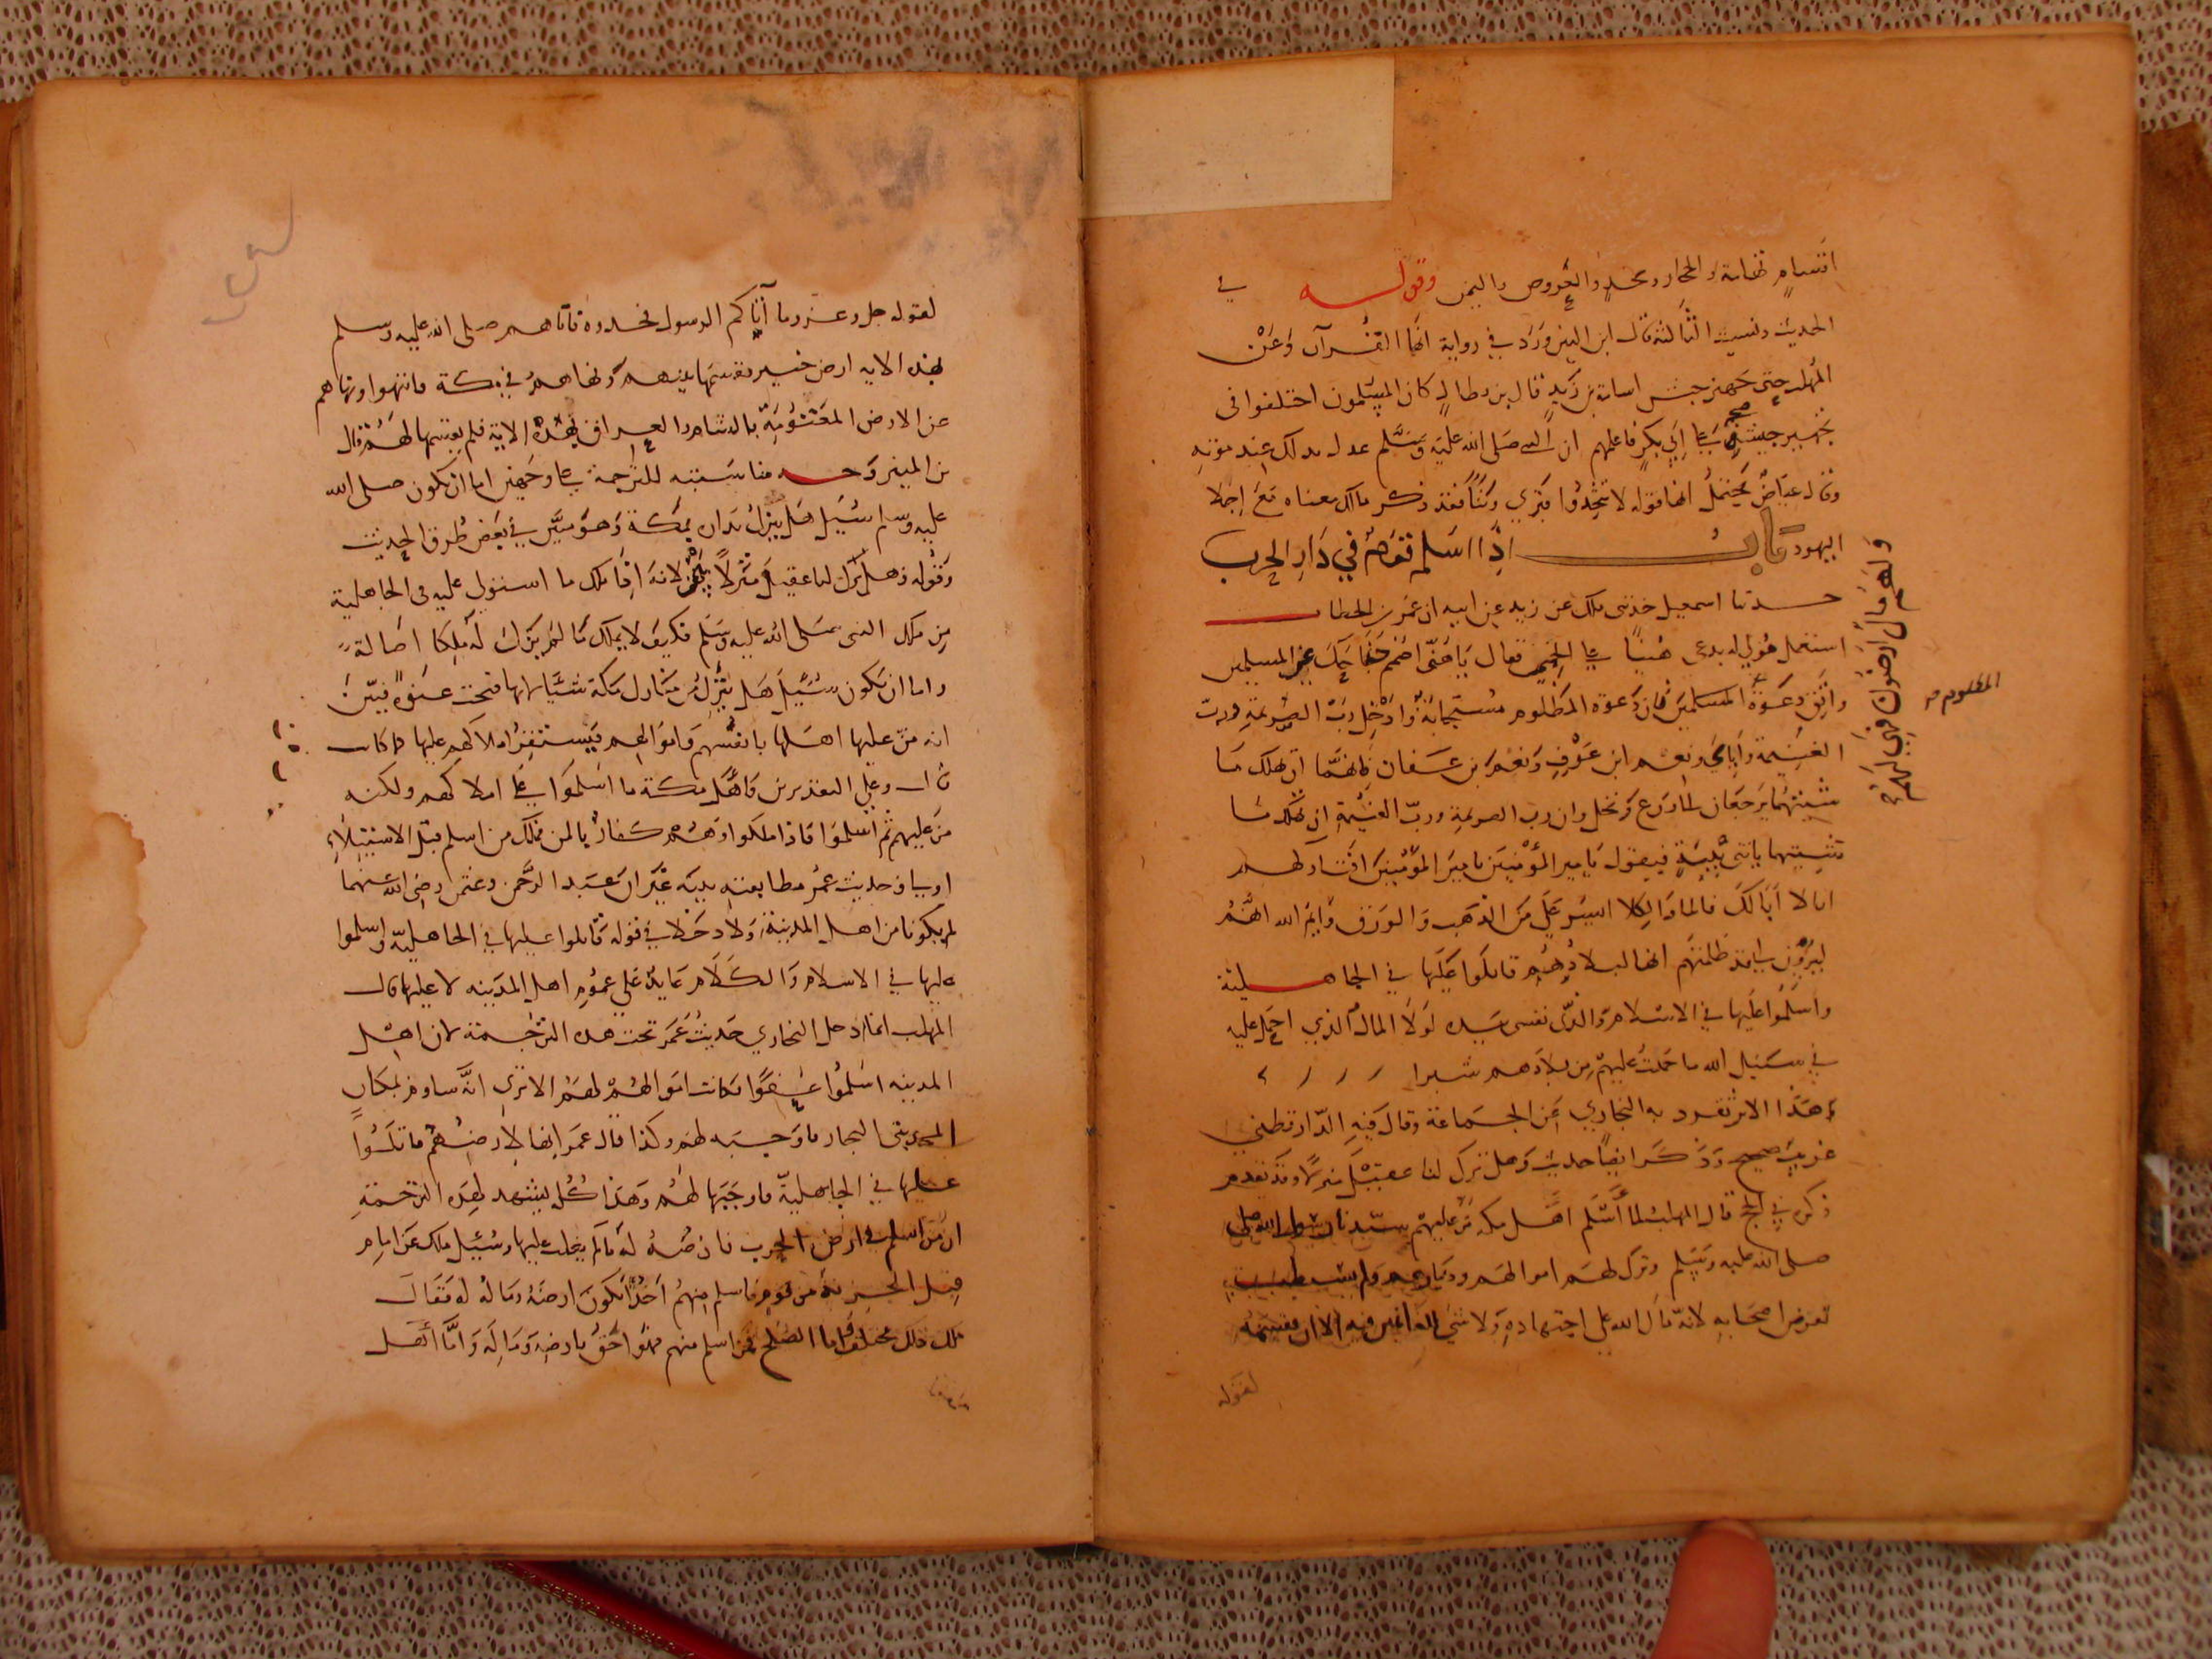 اقسام تهامة والحجاز ونجد والعروض واليمن وقوله في
الحديث ونسيت الثالثة قال ابن التين ورد في رواية انها القرآن وعن
المهلب جهز جيش اسامة بن زيد قال بن بطال كان المسلمون اختلفوا في
تجهيز جيشه على ابي بكر فاعلمهم ان النبي صلى الله عليه وسلم عهد بذلك عند موته
وقال عياض يحتمل انها قوله لا تتخذوا قبري وثنا فقد ذكر مالك معناه مع اجلا
اليهود باب اذا اسلم قوم في دار الحرب
ولهم مال وارضون فهي لهم
حدثنا اسمعيل حدثني ملك عن زيد عن ابيه ان عمر بن الخطاب
استعمل مولى له يدعى هنيا على الحمى فقال يا هني اضمم جناحك عن المسلمين
واتق دعوة المسلمين فان دعوة المظلوم مستجابة وادخل رب الصريمة ورب
المظلوم صح
الغنيمة واياي ونعم ابن عوف ونعم بن عفان فانهما ان تهلك ما
شيتهما يرجعان الى زرع ونخل وان رب الصريمة ورب الغنيمة ان تهلك ما
شيتهما ياتني ببنيه فيقول يا امير المؤمنين يا امير المؤمنين افتاركهم
انا لا ابا لك فالماء والكلا ايسر علي من الذهب والورق وايم الله انهم
ليرون اني قد ظلمتهم انها لبلادهم قاتلوا عليها في الجاهلية
واسلموا عليها في الاسلام والذي نفسي بيده لولا المال الذي احمل عليه
في سبيل الله ما حميت عليهم من بلادهم شبرا
هذا الاثر تفرد به البخاري عن الجماعة وقال فيه الدارقطني
غريب صحيح وذكر ايضا حديث وهل ترك لنا عقيل منزلا وقد تقدم
ذكره في الحج قال المهلب لما اسلم اهل مكة من عليهم سيدنا رسول الله صلى
صلى الله عليه وسلم وترك لهم اموالهم ودماءهم ولم
لغرض اصحابه لانه قال الله على اجتهاده ولا شي للغانمين فيه الا ان يقسمه
لقوله
لقوله جل وعز وما آتاكم الرسول فخذوه فاتاهم صلى الله عليه وسلم
بهذه الاية ارض خيبر فقسمها بينهم ونهاهم في مكة فانتهوا ونهاهم
عن الارض المغنومة بالشام والعراق بهذه الاية فلم يقسمها لهم قال
بن المنير وجه مناسبته للترجمة على وجهين اما ان يكون صلى الله
عليه وسلم سئيل هل ينزل بداره بمكة وهو مبين في بعض طرق الحديث
وقوله وهل ترك لنا عقيل منزلا بين لانه اذا ملك ما استولى عليه في الجاهلية
من ملك النبي صلى الله عليه وسلم فكيف لا يملك ما لم يزل له ملكا اصالة
واما ان يكون سئيل هل ينزل منازل مكة شيا لانها فتحت عنوة فبين
انه من عليها اهلها بانفسهم واموالهم فيستقر املاكهم عليها كما كانت
قال وعلى التقديرين فاهل مكة ما اسلموا على املاكهم ولكنه
من عليهم ثم اسلموا فاذا ملكوا وهم كفار بالمن فملك من اسلم قبل الاستيلاء
اولى وحديث عمر مطابقته بينه غير ان عبد الرحمن وعثمن رضي الله عنهما
لم يكونا من اهل المدينة ولا دخلا في قوله قاتلوا عليها في الجاهلية واسلموا
عليها في الاسلام والكلام عايد على عموم اهل المدينة لا عليهما قال
المهلب انما ادخل البخاري حديث عمر تحت هذه الترجمة لان اهل
المدينة اسلموا عفوا وكانت اموالهم لهم الا ترى انه ساوم بمكان
المسجد بني النجار فاوجبه لهم وكذا قال عمر انها لارضهم قاتلوا
عليها في الجاهلية فاوجبها لهم وهذا كله يشهد لهذه الترجمة
ان من اسلم في ارض الحرب فارضه له ما لم يغلب عليها وسئيل ملك عن امام
قبل الجزية من قوم فاسلم منهم احد اتكون ارضه وماله له فقال
ملك ذلك مختلف اما الصلح فمن اسلم منهم فهو احق بارضه وماله واما اهل